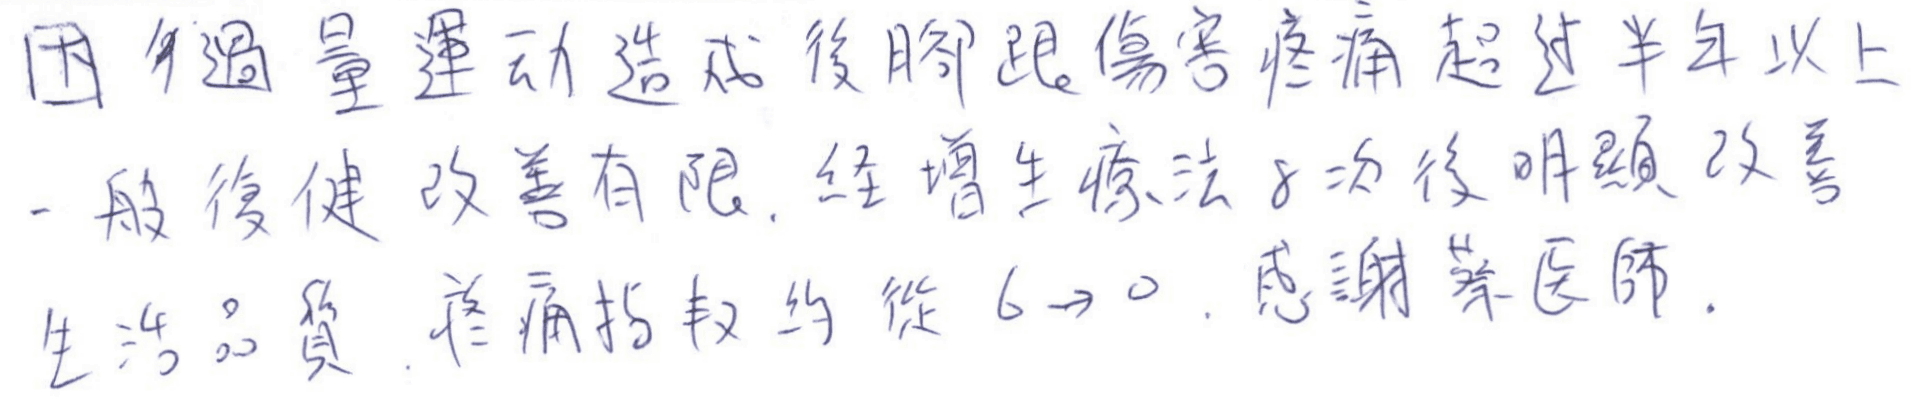 因過量運动造成後腳跟傷害疼痛超过半年以上
一般復健改善有限．経增生療法8次後明顯改善
生活品質．疼痛指数約從6→0．感謝蔡医師．